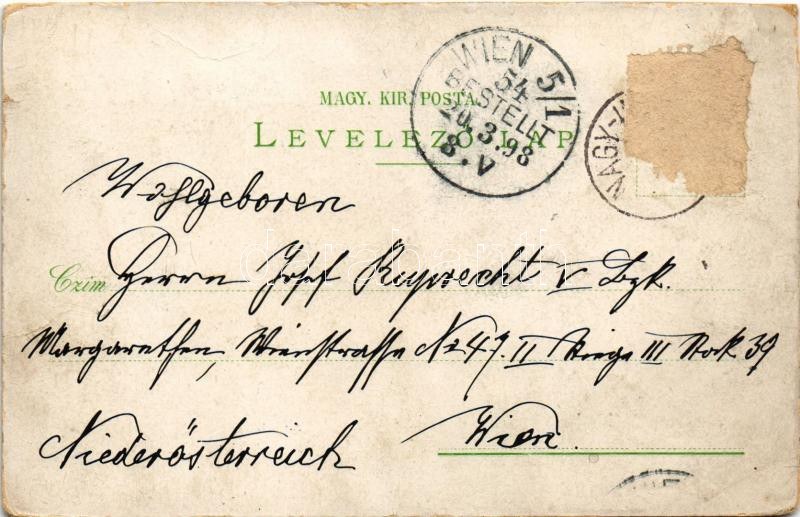 MAGY. KIR. POSTA.
LEVELEZŐ LAP
WIEN 5/1
54
BESTELLT
20.3.98
8.V
NAGY-
Wohlgeboren
Czim Herrn Josef Ruprecht V Bzk.
Margarethen, Wienstrasse No 47. II Stiege III Stock 39
Niederösterreich Wien.